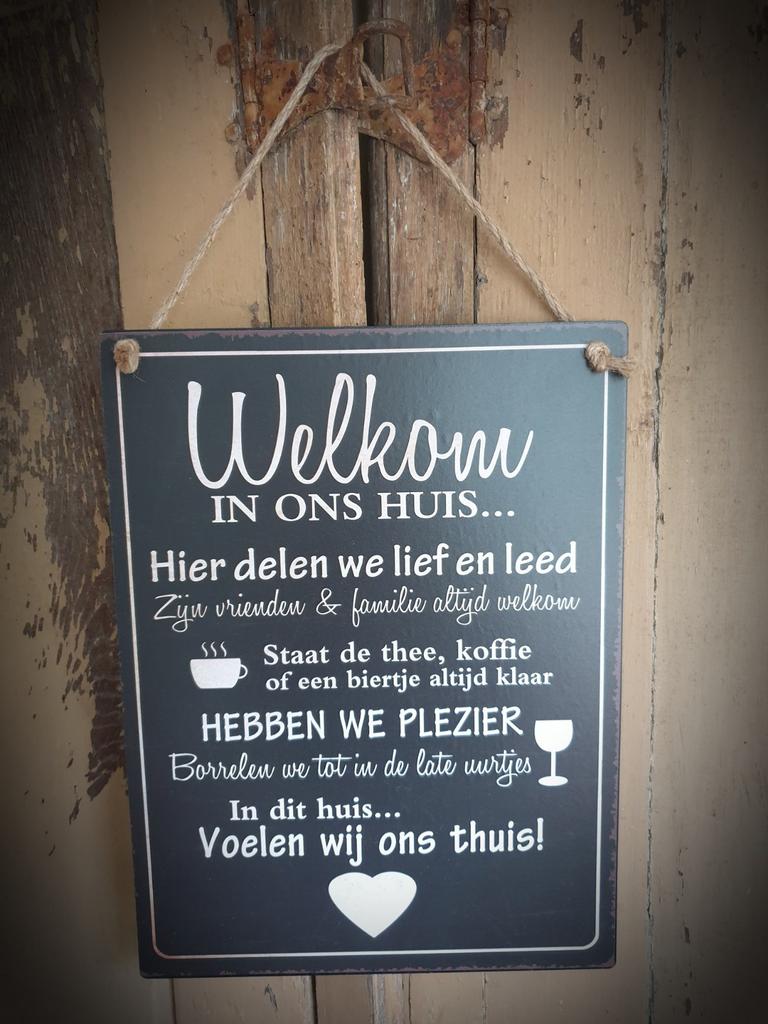 Welkom
IN ONS HUIS...
Hier delen we lief en leed
Zijn vrienden & familie altijd welkom
Staat de thee, koffie
of een biertje altijd klaar
HEBBEN WE PLEZIER
Borrelen we tot in de late uurtjes
In dit huis...
Voelen wij ons thuis!